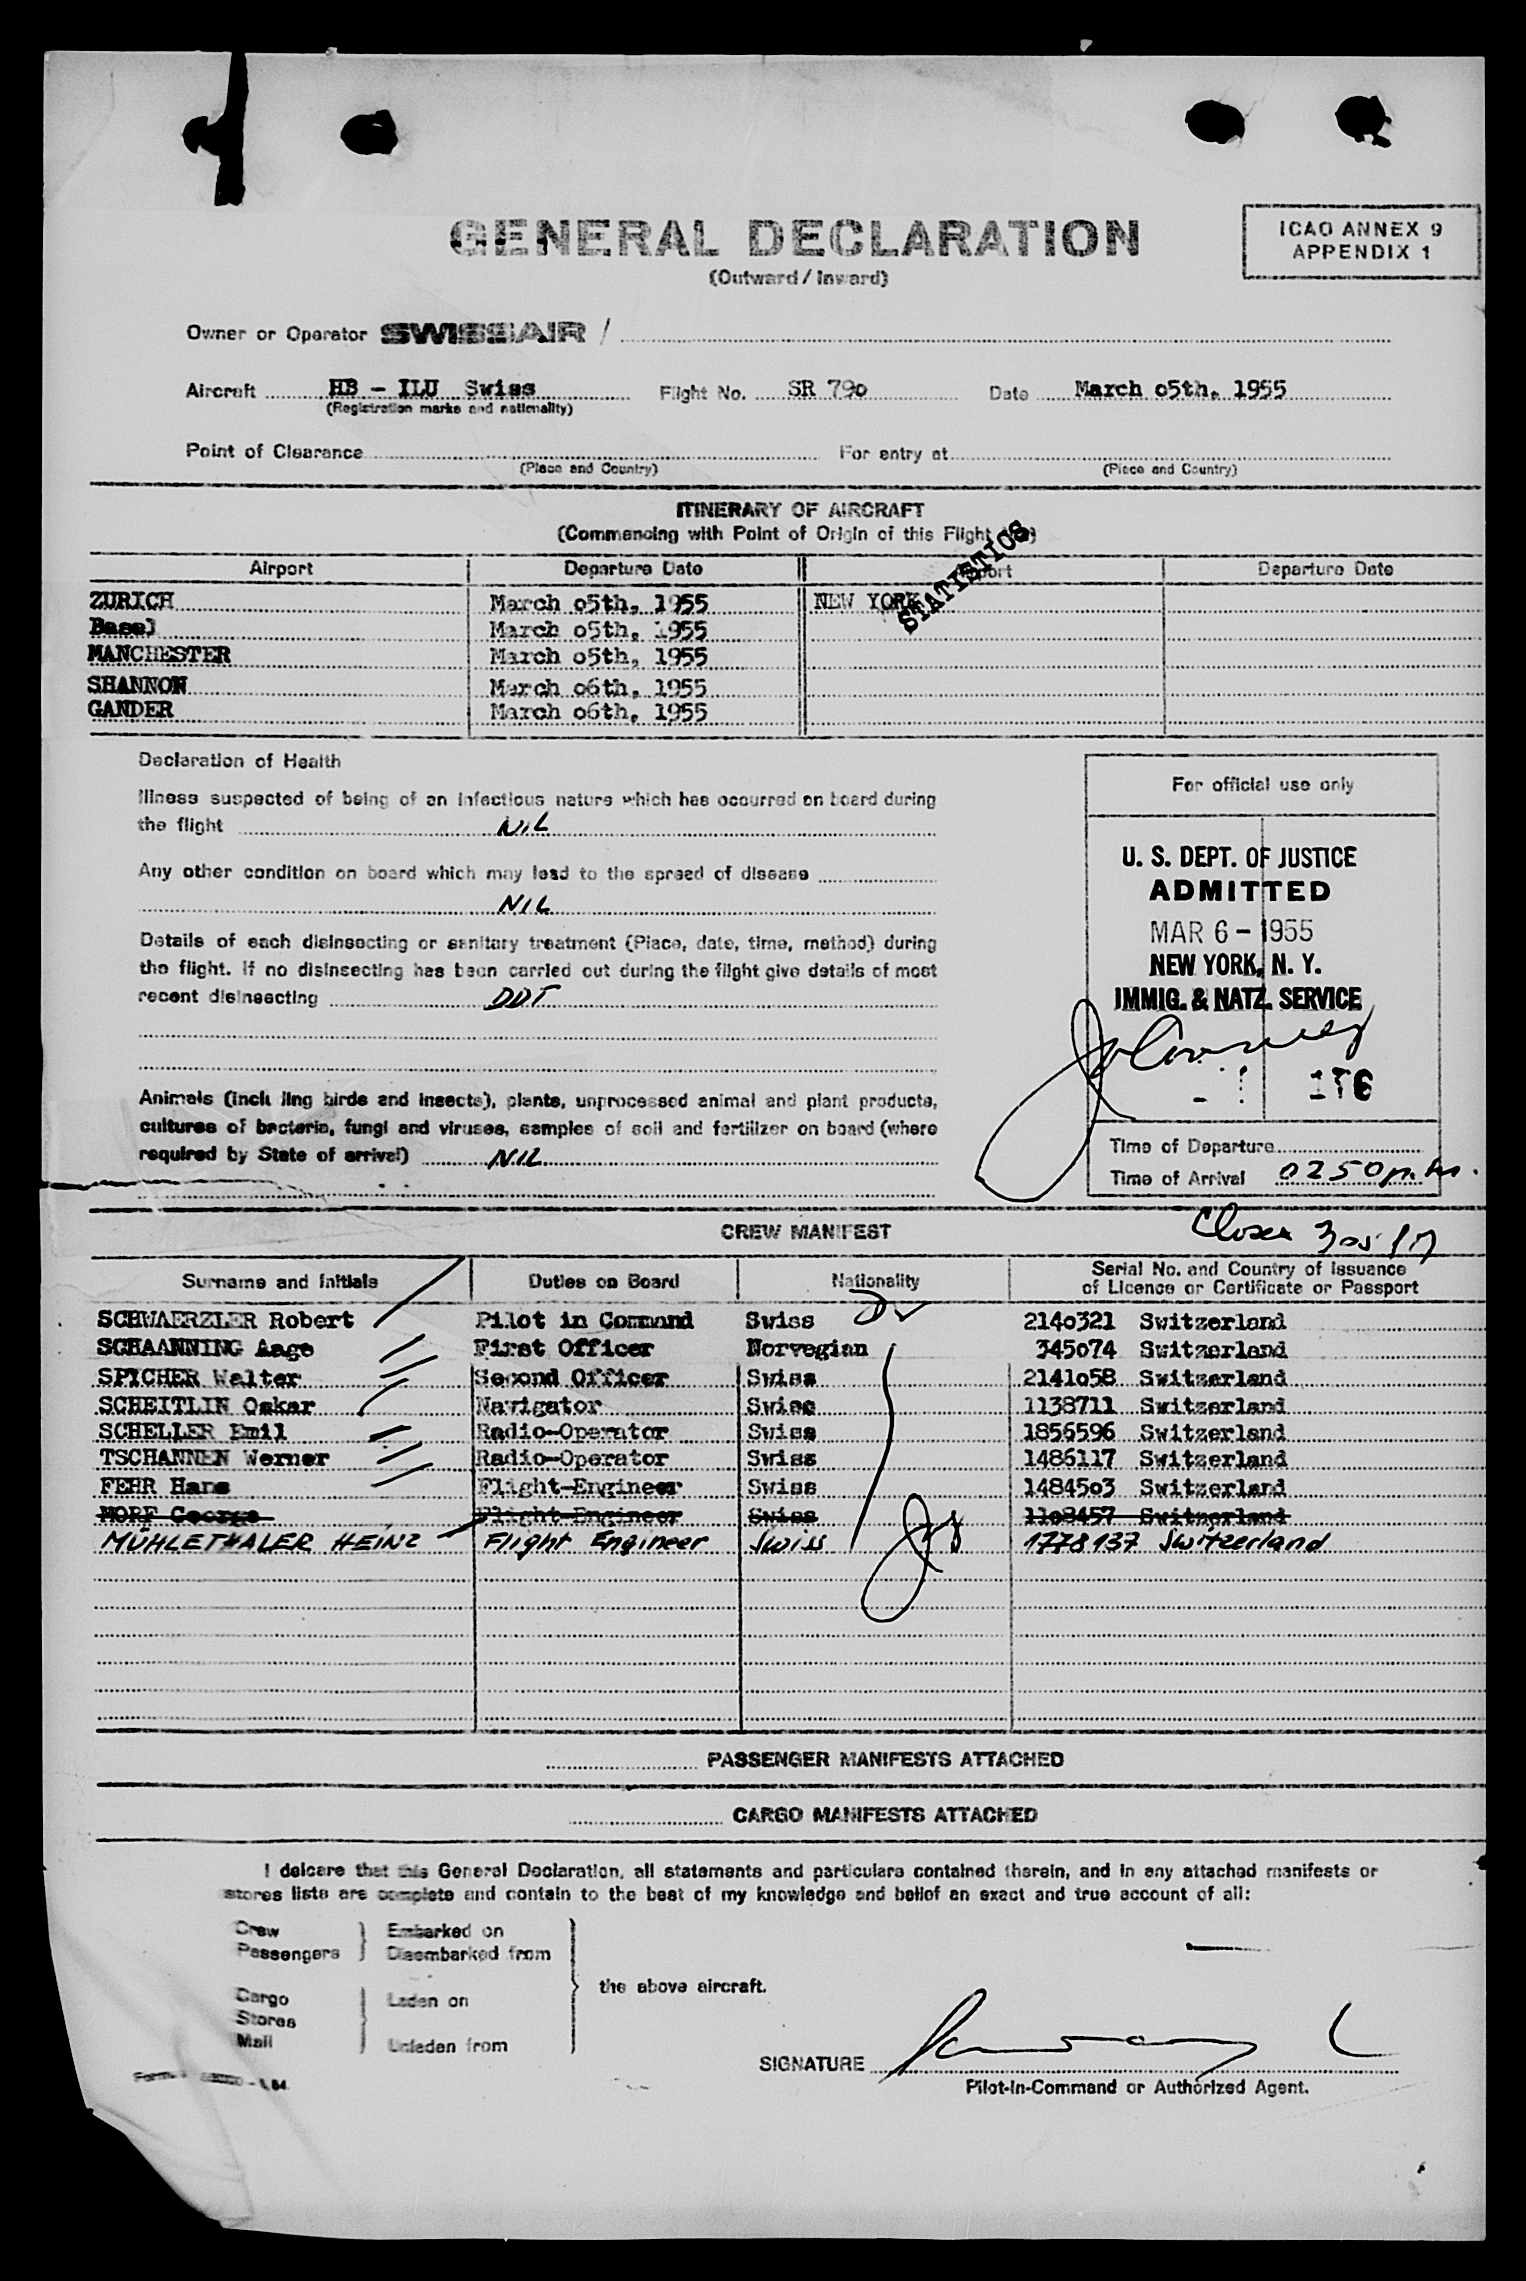 GENERAL DECLARATION
(Outward / Inward)
ICAO ANNEX 9
APPENDIX 1
Owner or Operator SWISSAIR /
Aircraft HB - ILU Swiss Flight No. SR 79o Date March o5th, 1955
(Registration marks and nationality)
Point of Clearance For entry at
(Place and Country) (Place and Country)
ITINERARY OF AIRCRAFT
(Commencing with Point of Origin of this Flight
STATISTICS
Airport Departure Date Airport Departure Date
ZURICH March o5th, 1955 NEW YORK
Basel March o5th, 1955
MANCHESTER March o5th, 1955
SHANNON March o6th, 1955
GANDER March o6th, 1955
Declaration of Health
Illness suspected of being of an infectious nature which has occurred on board during
the flight NIL
Any other condition on board which may lead to the spread of disease
NIL
Details of each disinsecting or sanitary treatment (Place, date, time, method) during
the flight. If no disinsecting has been carried out during the flight give details of most
recent disinsecting DDT
Animals (incl ing birds and insects), plants, unprocessed animal and plant products,
cultures of bacteria, fungi and viruses, samples of soil and fertilizer on board (where
required by State of arrival) NIL
For official use only
U. S. DEPT. OF JUSTICE
ADMITTED
MAR 6 - 1955
NEW YORK, N. Y.
IMMIG. & NATZ. SERVICE
176
Time of Departure
Time of Arrival 0250 p.m.
CREW MANIFEST
Surname and Initials Duties on Board Nationality Serial No. and Country of Issuance
of Licence or Certificate or Passport
SCHWAERZLER Robert Pilot in Command Swiss 214o321 Switzerland
SCHAANNING Aage First Officer Norwegian 345o74 Switzerland
SPYCHER Walter Second Officer Swiss 2141o58 Switzerland
SCHEITLIN Oskar Navigator Swiss 1138711 Switzerland
SCHELLER Emil Radio-Operator Swiss 1856596 Switzerland
TSCHANNEN Werner Radio-Operator Swiss 1486117 Switzerland
FEHR Hans Flight-Engineer Swiss 14845o3 Switzerland
MORF George Flight-Engineer Swiss 11o8457 Switzerland
MÜHLETHALER HEINZ Flight Engineer Swiss 1778137 Switzerland
PASSENGER MANIFESTS ATTACHED
CARGO MANIFESTS ATTACHED
I delcare that this General Declaration, all statements and particulars contained therein, and in any attached manifests or
stores lists are complete and contain to the best of my knowledge and belief an exact and true account of all:
Crew Embarked on
Passengers Disembarked from
the above aircraft.
Cargo Laden on
Stores
Mail Unladen from
SIGNATURE
Pilot-in-Command or Authorized Agent.